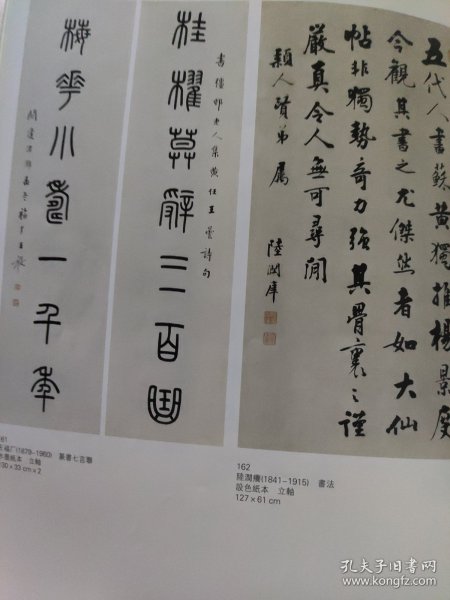 五代人書蘇黃獨推楊景度
今觀其書之尤傑然者如大仙
帖非獨勢奇力強其骨裏之謹
嚴真令人無可尋間
穎人賢弟屬
陸潤庠
桂櫂莫辭三百
老人集黃任王曇詩句
梅花小壽一千年
福厂王
161
福厂(1879-1960) 篆書七言聯
水墨紙本 立軸
130 x 33 cm x 2
162
陸潤癢(1841-1915) 書法
設色紙本 立軸
127 x 61 cm
孔夫子旧书网
www.kongfz.com